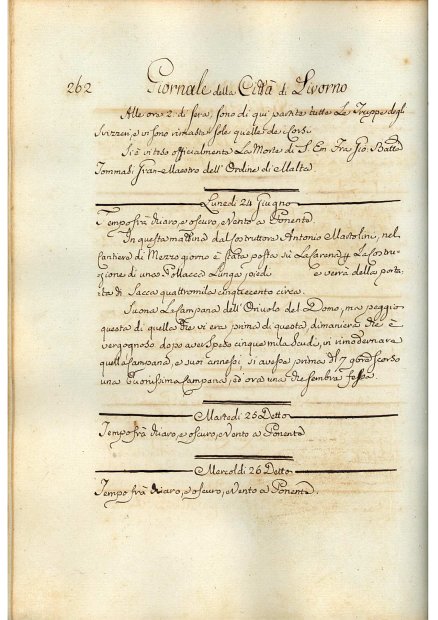 262 Giornale della Città di Livorno
Alle ore 2 di sera, sono di quì partite tutte Le Truppe degli
Svizzeri, e vi sono rimaste sole quelle de Corsi.
Si è inteso officialmente La Morte di S. Em Fra Gio. Batta
Tommasi Gran-Maestro dell'Ordine di Malta
Lunedi 24 Giugno
Tempo frà chiaro, e oscuro, e Vento a Ponente
In questa mattina dal Costruttore Antonio Mastolini, nel
Cantiere di Mezzogiorno è stata posta sù La Carena p La Costru-
zione di una Pollacca Lunga piedi e verrà della porta-
ta di Sacca quattromila cinquecento circa.
Suona La Campana dell'Orivolo del Domo, ma peggio
questa di quella che vi era prima di questa, dimaniera che è
vergognoso dopo aver speso cinque mila Scudi, in rimodernare
quella Campana, e suoi annessi, si avesse prima del 79 scorso
una buonissima Campana, ed ora una che sembra fessa
Martedì 25 Detto
Tempo frà chiaro, e oscuro, e Vento a Ponente
Mercoldì 26 Detto
Tempo frà chiaro, e oscuro, e Vento a Ponente.